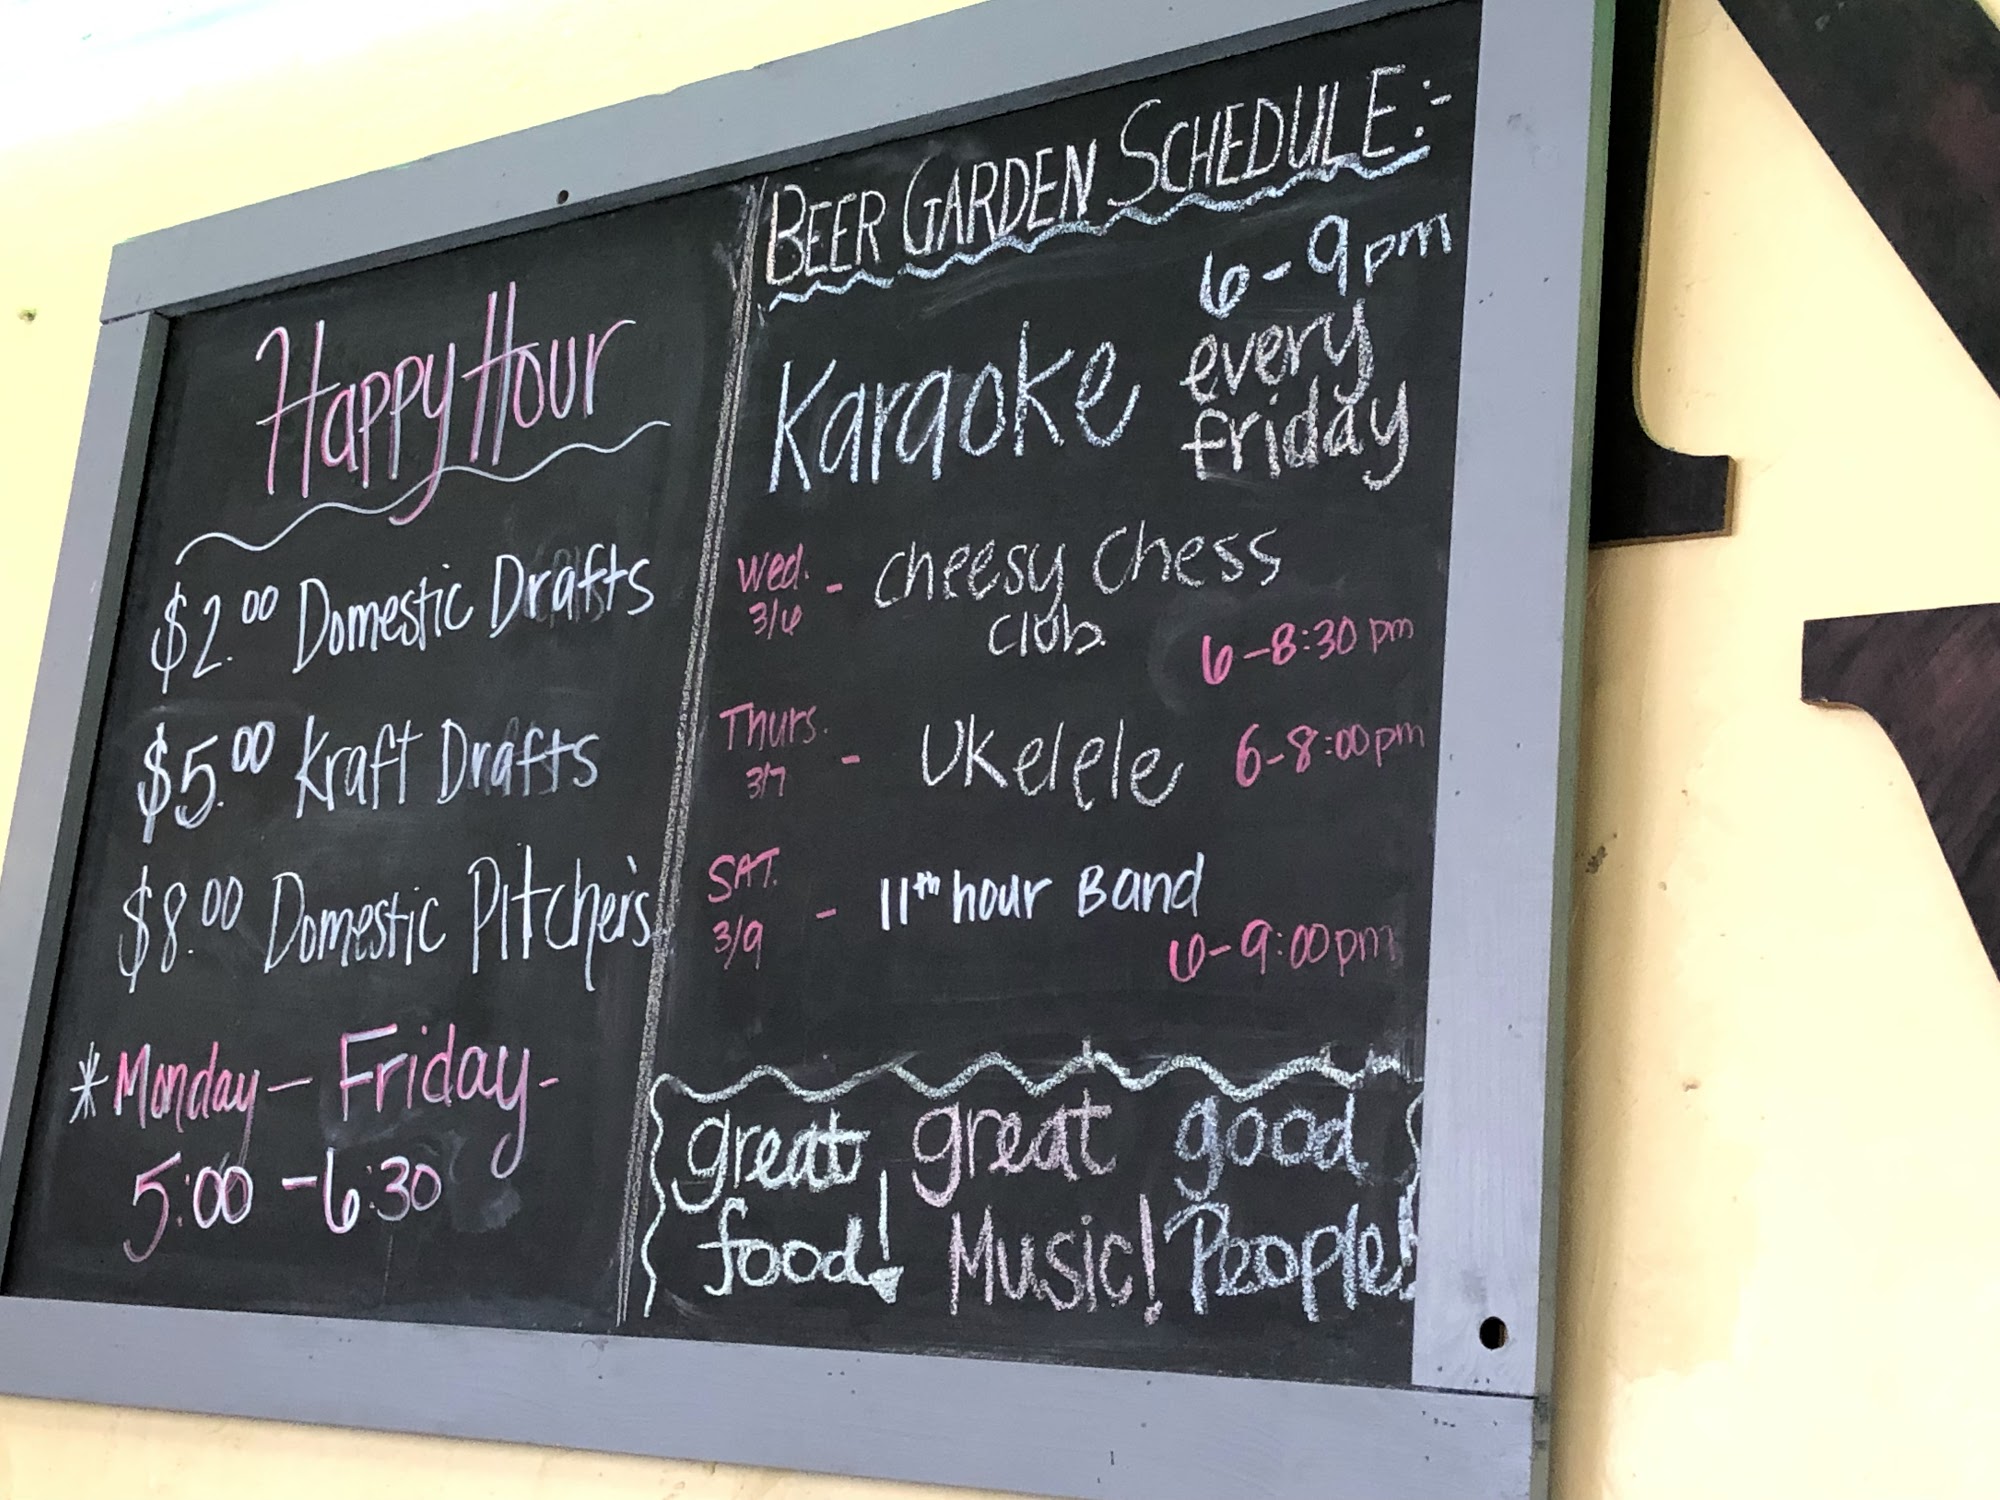 Happy Hour
$2.00 Domestic Drafts
$5.00 Kraft Drafts
$8.00 Domestic Pitcher's
*Monday – Friday -
5:00 - 6:30
BEER GARDEN SCHEDULE:-
Karaoke 6-9pm
every
friday
Wed. - Cheesy Chess
3/6 Club.
6-8:30 pm
Thurs. - Ukelele 6-8:00pm
3/7
SAT. - 11th hour Band
3/9 6-9:00pm
great great good
food! Music! People!